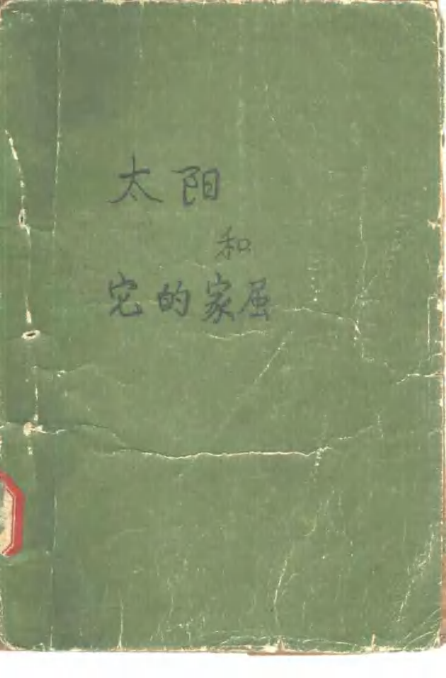 太阳
和
它的家属